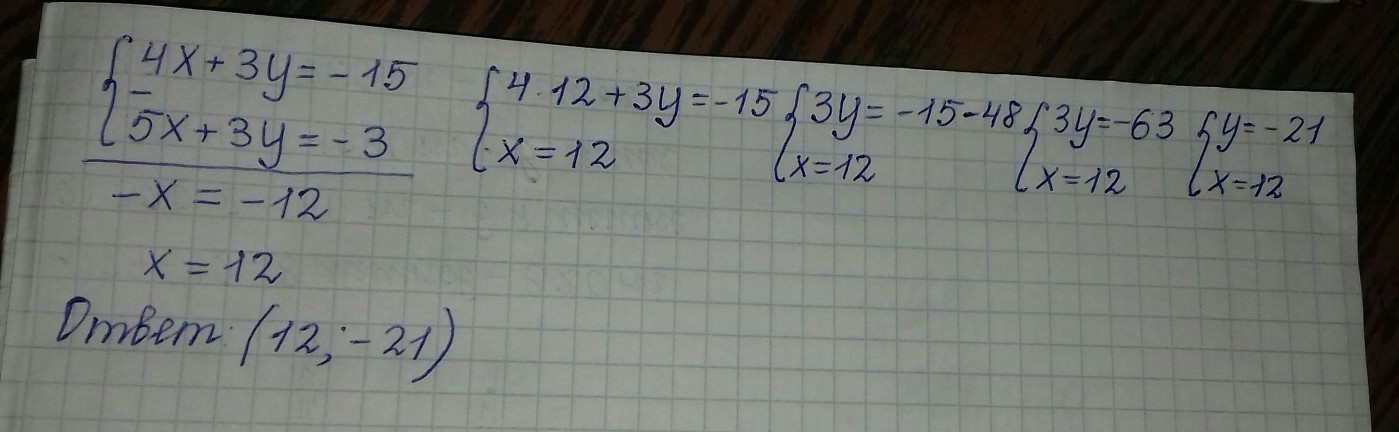 {4x + 3y = -15
−
5x + 3y = -3
-x = -12
x = 12
{4 · 12 + 3y = -15
x = 12
{3y = -15 - 48
x = 12
{3y = -63
x = 12
{y = -21
x = 12
Ответ: (12; -21)